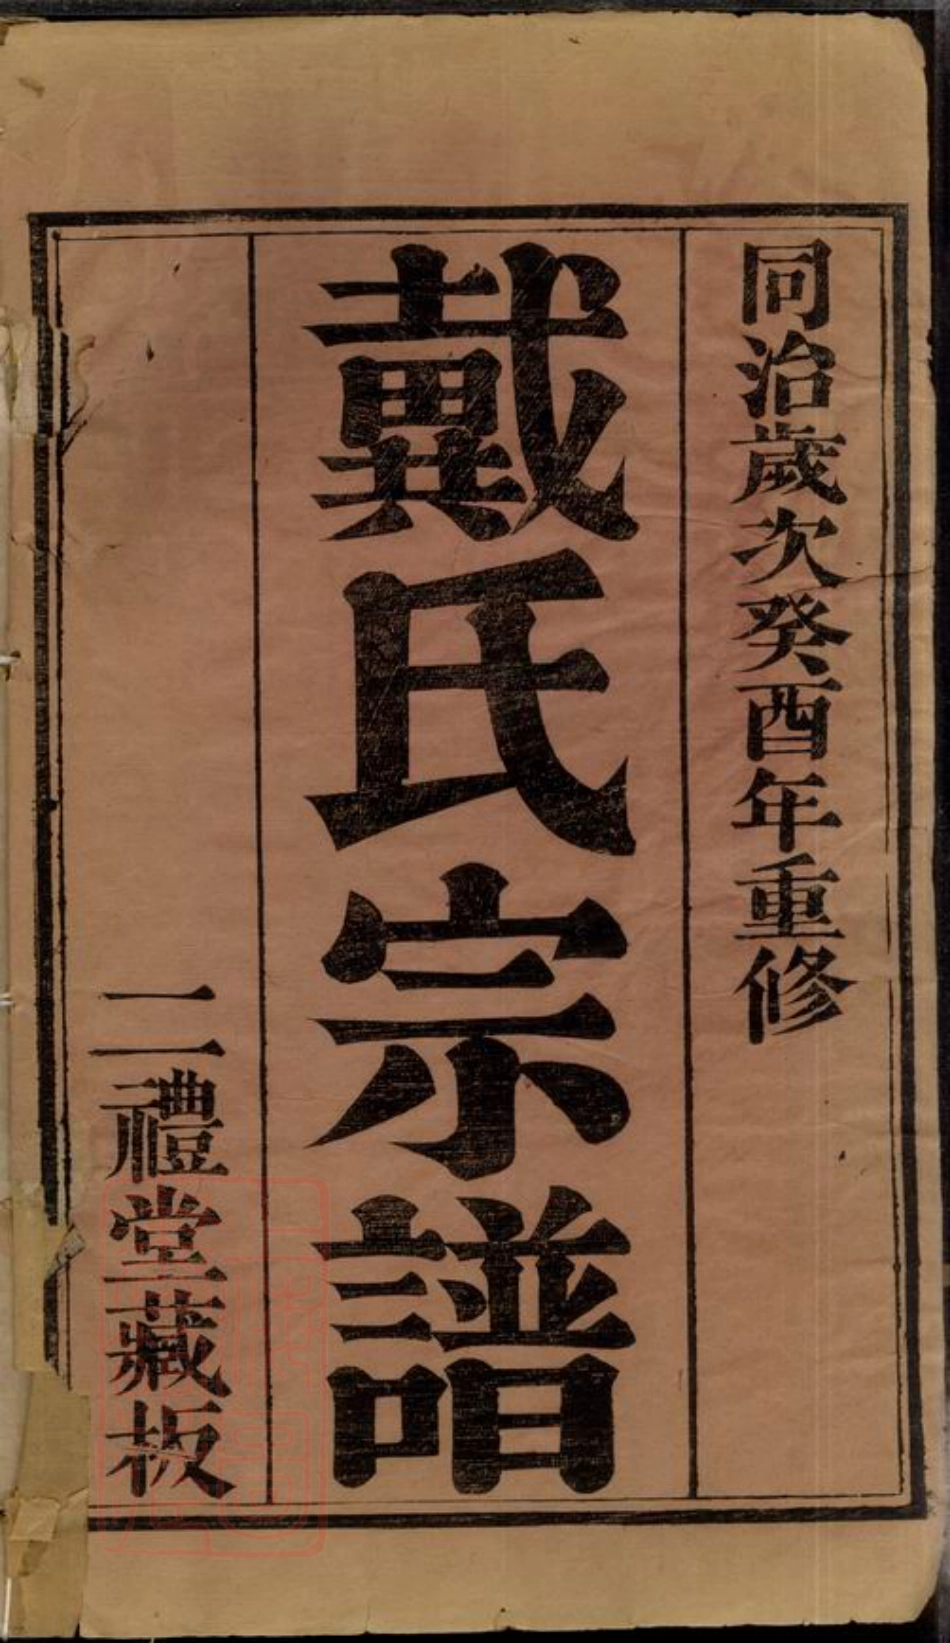 同治歲次癸酉年重修
戴氏宗譜
二禮堂藏板